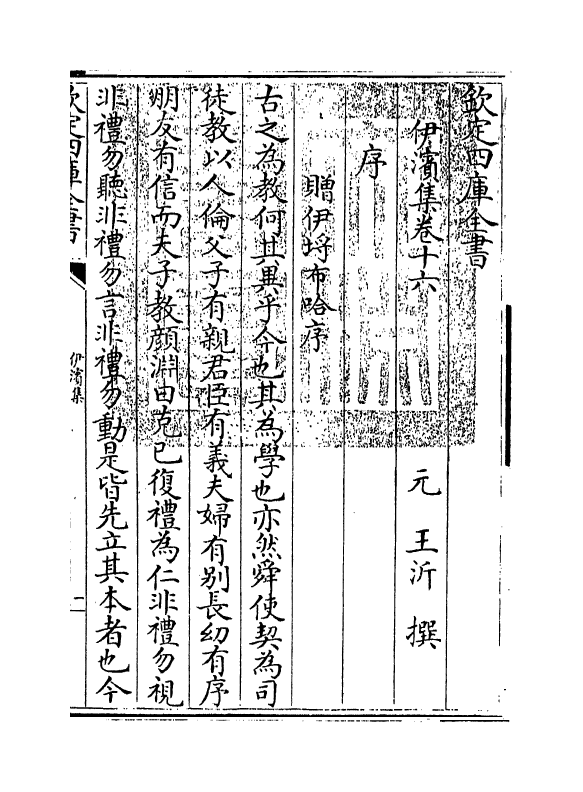 欽定四庫全書
伊濱集卷十六
元 王沂 撰
序
贈伊埒布哈序
古之為教何其異乎今也其為學也亦然舜使契為司
徒教以人倫父子有親君臣有義夫婦有别長幼有序
朋友有信而夫子教顔淵曰克己復禮為仁非禮勿視
非禮勿聽非禮勿言非禮勿動是皆先立其本者也今
欽定四庫全書
伊濱集